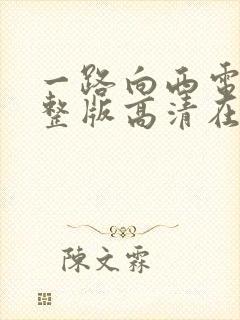 一路向西電
整版高清在
陳文霖